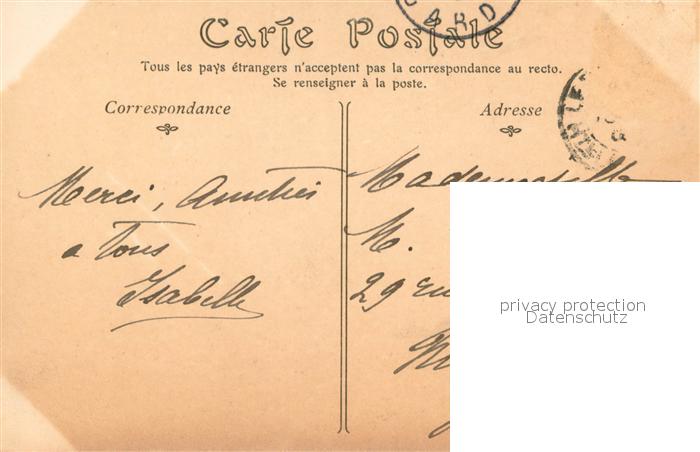 GARD
Carte Postale
Tous les pays étrangers n'acceptent pas la correspondance au recto.
Se renseigner à la poste.
Correspondance
Adresse
Merci, Amitiés
a tous
Isabelle
Mademoiselle
M.
29 rue
privacy protection
Datenschutz